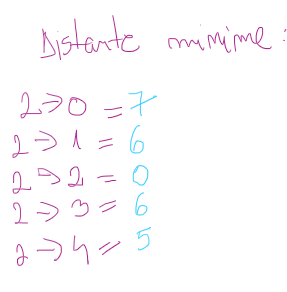 Distante minime:
2->0 = 7
2->1 = 6
2->2 = 0
2->3 = 6
2->4 = 5